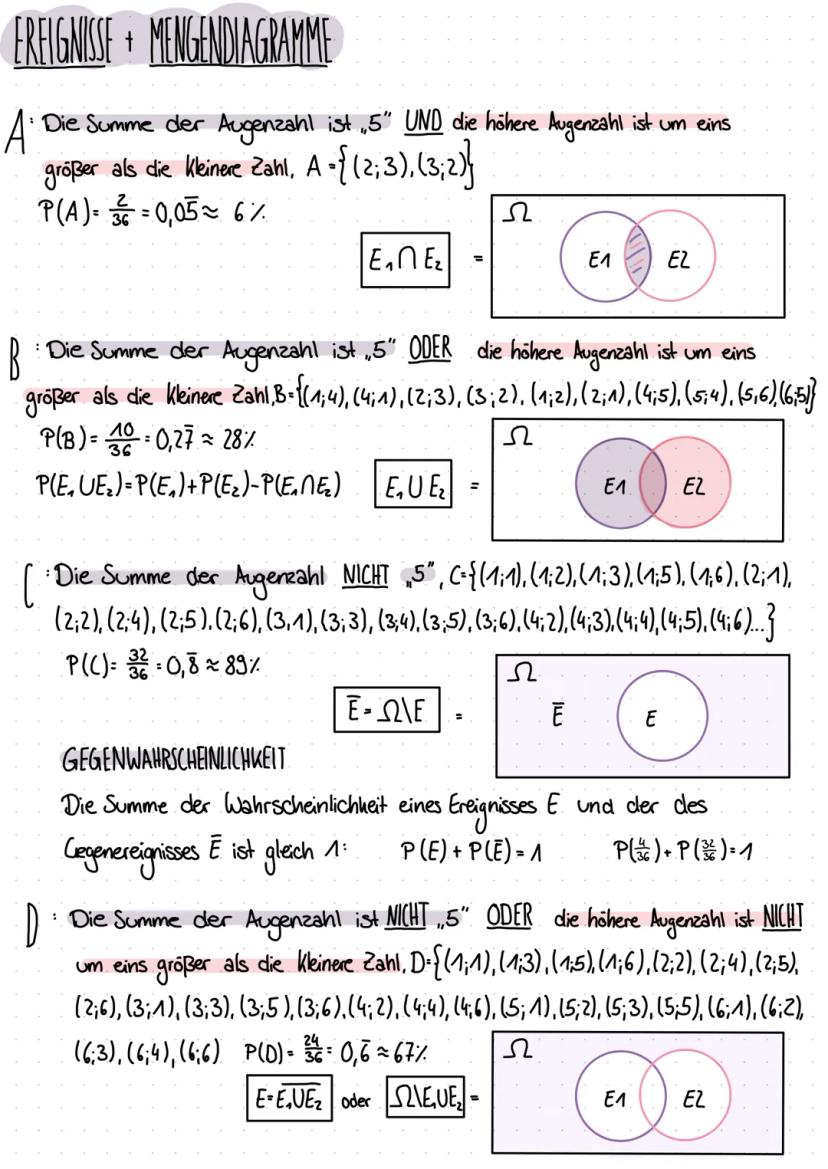 EREIGNISSE + MENGENDIAGRAMME
A: Die Summe der Augenzahl ist „5" UND die höhere Augenzahl ist um eins
größer als die kleinere Zahl, A={(2;3),(3;2)}
P(A)= 2/36 = 0,05̅ ≈ 6%
Ω
E₁∩E₂ = E1 E2
B: Die Summe der Augenzahl ist „5" ODER die höhere Augenzahl ist um eins
größer als die kleinere Zahl, B={(1;4),(4;1),(2;3),(3;2),(1;2),(2;1),(4;5),(5;4),(5;6),(6;5)}
P(B)= 10/36 = 0,27̅ ≈ 28%
Ω
P(E₁∪E₂)=P(E₁)+P(E₂)-P(E₁∩E₂) E₁∪E₂ = E1 E2
C: Die Summe der Augenzahl NICHT „5", C={(1;1),(1;2),(1;3),(1;5),(1;6),(2;1),
(2;2),(2;4),(2;5),(2;6),(3,1),(3;3),(3;4),(3;5),(3;6),(4;2),(4;3),(4;4),(4;5),(4;6)...}
P(C)= 32/36 = 0,8̅ ≈ 89%
Ω
E̅=Ω\E = E̅ E
GEGENWAHRSCHEINLICHKEIT
Die Summe der Wahrscheinlichkeit eines Ereignisses E und der des
Gegenereignisses E̅ ist gleich 1: P(E)+P(E̅)=1 P(4/36)+P(32/36)=1
D: Die Summe der Augenzahl ist NICHT „5" ODER die höhere Augenzahl ist NICHT
um eins größer als die kleinere Zahl, D={(1;1),(1;3),(1;5),(1;6),(2;2),(2;4),(2;5),
(2;6),(3;1),(3;3),(3;5),(3;6),(4;2),(4;4),(4;6),(5;1),(5;2),(5;3),(5;5),(6;1),(6;2),
(6;3),(6;4),(6;6) P(D)= 24/36 = 0,6̅ ≈ 67%
Ω
E=E̅₁̅∪̅E̅₂̅ oder Ω\E₁∪E₂ = E1 E2